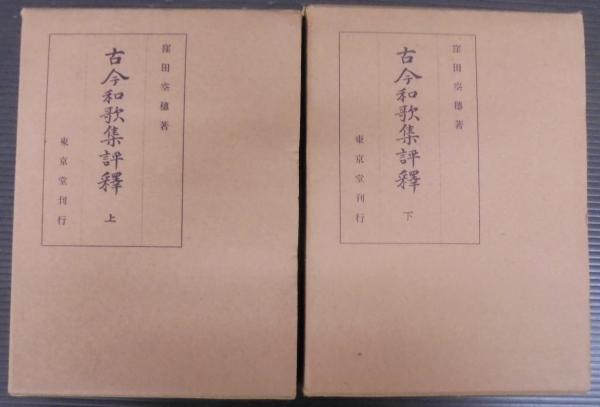 窪田空穗著
古今和歌集評釋 上
東京堂刊行
窪田空穗著
古今和歌集評釋 下
東京堂刊行